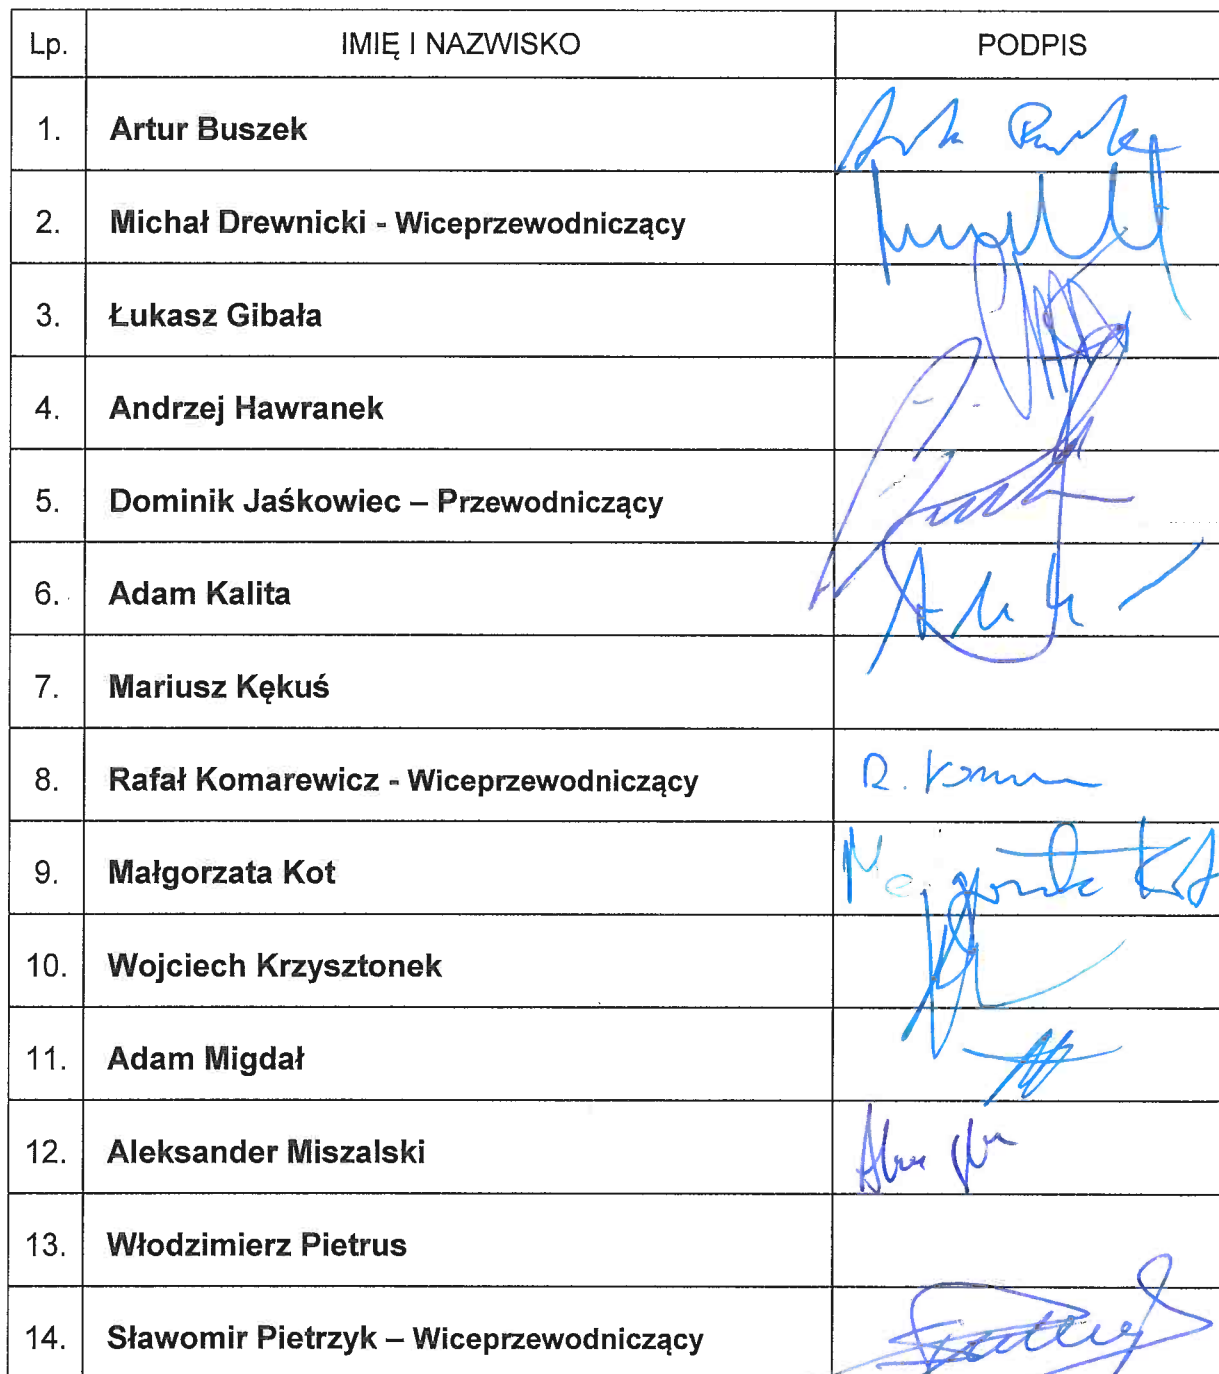 Lp. IMIĘ I NAZWISKO PODPIS
1. Artur Buszek
2. Michał Drewnicki - Wiceprzewodniczący
3. Łukasz Gibała
4. Andrzej Hawranek
5. Dominik Jaśkowiec – Przewodniczący
6. Adam Kalita
7. Mariusz Kękuś
8. Rafał Komarewicz - Wiceprzewodniczący R.
9. Małgorzata Kot Kot
10. Wojciech Krzysztonek
11. Adam Migdał
12. Aleksander Miszalski
13. Włodzimierz Pietrus
14. Sławomir Pietrzyk – Wiceprzewodniczący